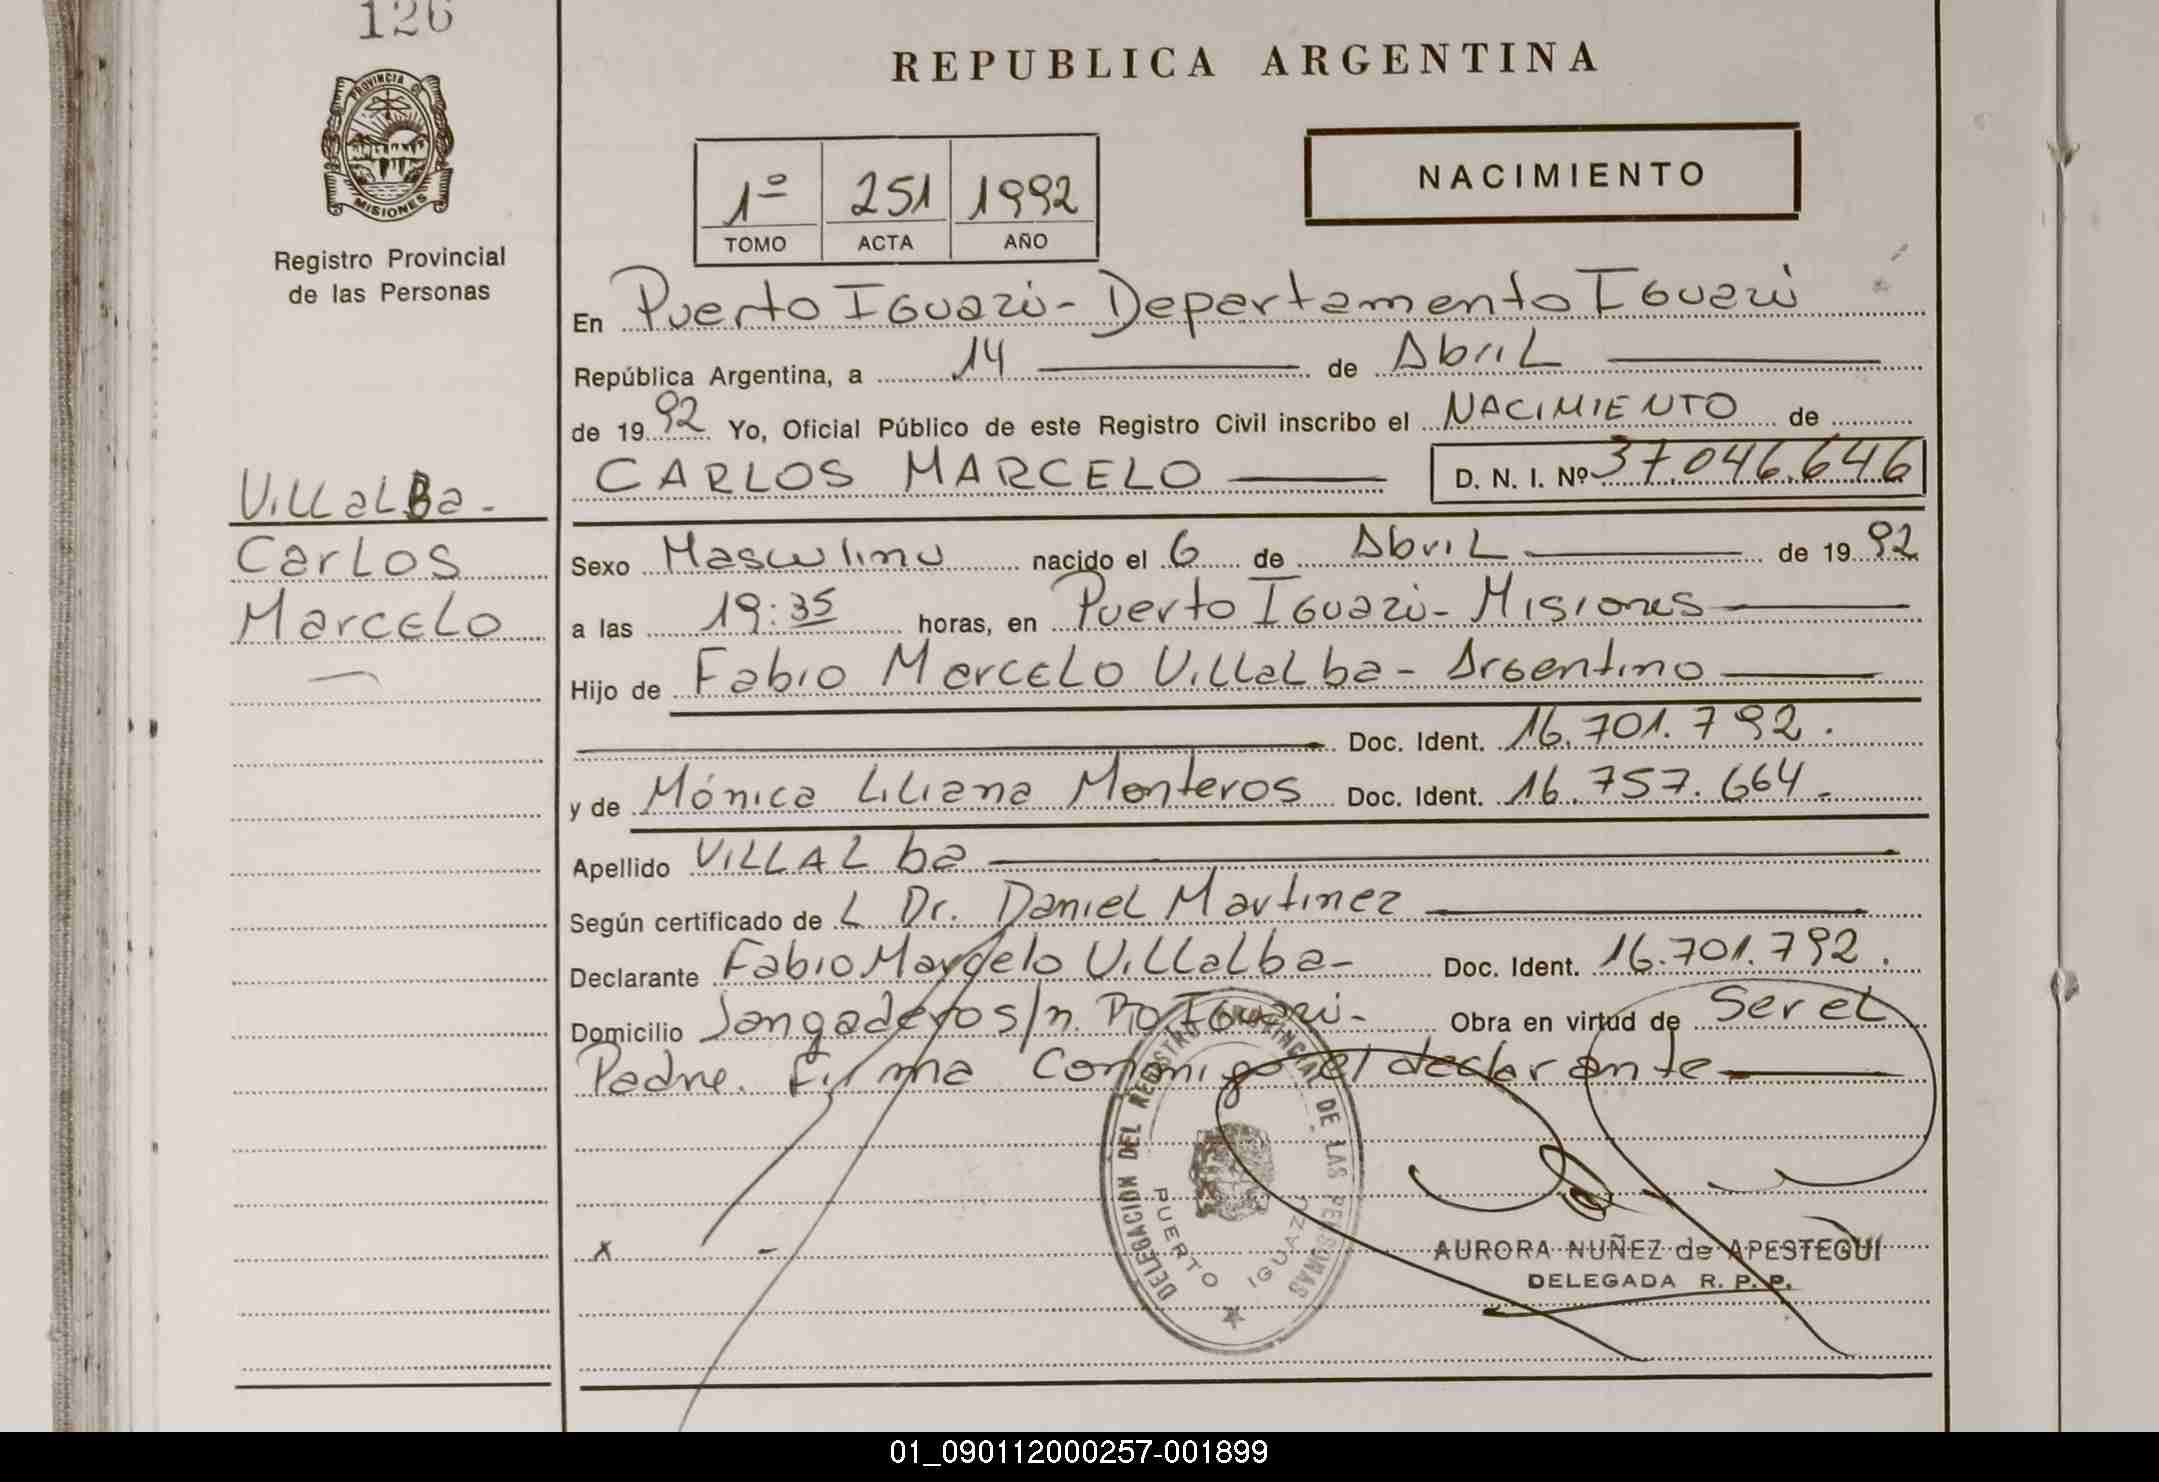 126
REPUBLICA ARGENTINA
PROVINCIA DE
MISIONES
Registro Provincial
de las Personas
1º 251 1992
TOMO ACTA AÑO
NACIMIENTO
En Puerto Iguazú - Departamento Iguazú
República Argentina, a 14 de Abril
de 1992 Yo, Oficial Público de este Registro Civil inscribo el NACIMIENTO de
CARLOS MARCELO D. N. I. Nº 37.046.646
Villalba -
Carlos
Marcelo
Sexo Masculino nacido el 6 de Abril de 1992
a las 19:35 horas, en Puerto Iguazú - Misiones
Hijo de Fabio Marcelo Villalba - Argentino
Doc. Ident. 16.701.792.
y de Mónica Liliana Monteros Doc. Ident. 16.757.664.
Apellido VILLALba
Según certificado de L Dr. Daniel Martinez
Declarante Fabio Marcelo Villalba - Doc. Ident. 16.701.792.
Domicilio Jangaderos s/n. Pto Iguazú - Obra en virtud de Ser el
Padre. Firma Conmigo el declarante
x
DELEGACION DEL REGISTRO PROVINCIAL DE LAS PERSONAS
PUERTO IGUAZU
AURORA NUÑEZ de APESTEGUI
DELEGADA R. P. P.
01_090112000257-001899